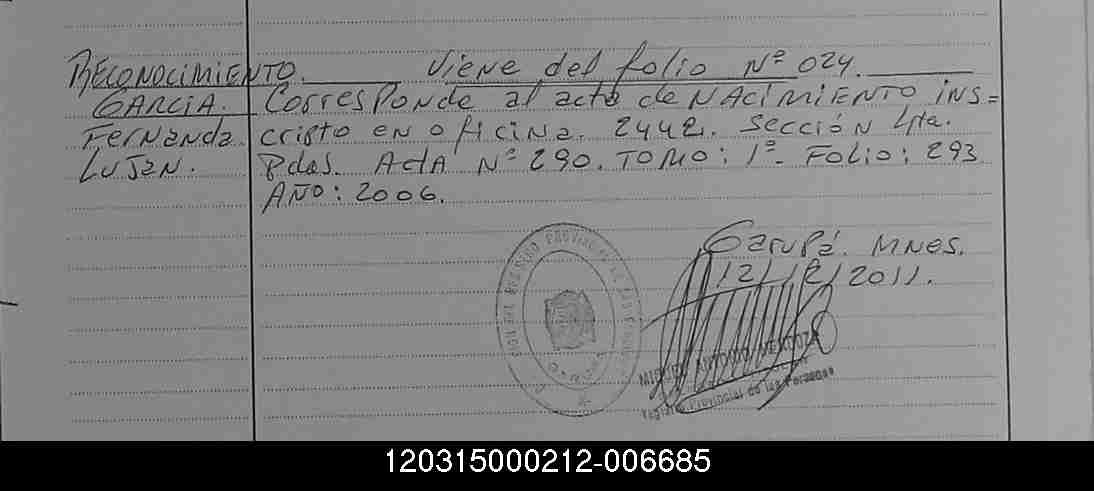 RECONOCIMIENTO. Viene del folio Nº 024.
GARCIA. Corresponde al acta de NACIMIENTO ins=
Fernanda cripto en oficina. 2442. Sección
LUJAN. Pdas. Acta Nº 290. TOMO: 1º- Folio: 293
AÑO: 2006.
Garupá. MNES.
12/12/2011.
MIGUEL ANTONIO MENDOZA
Registro Provincial de las Personas
120315000212-006685